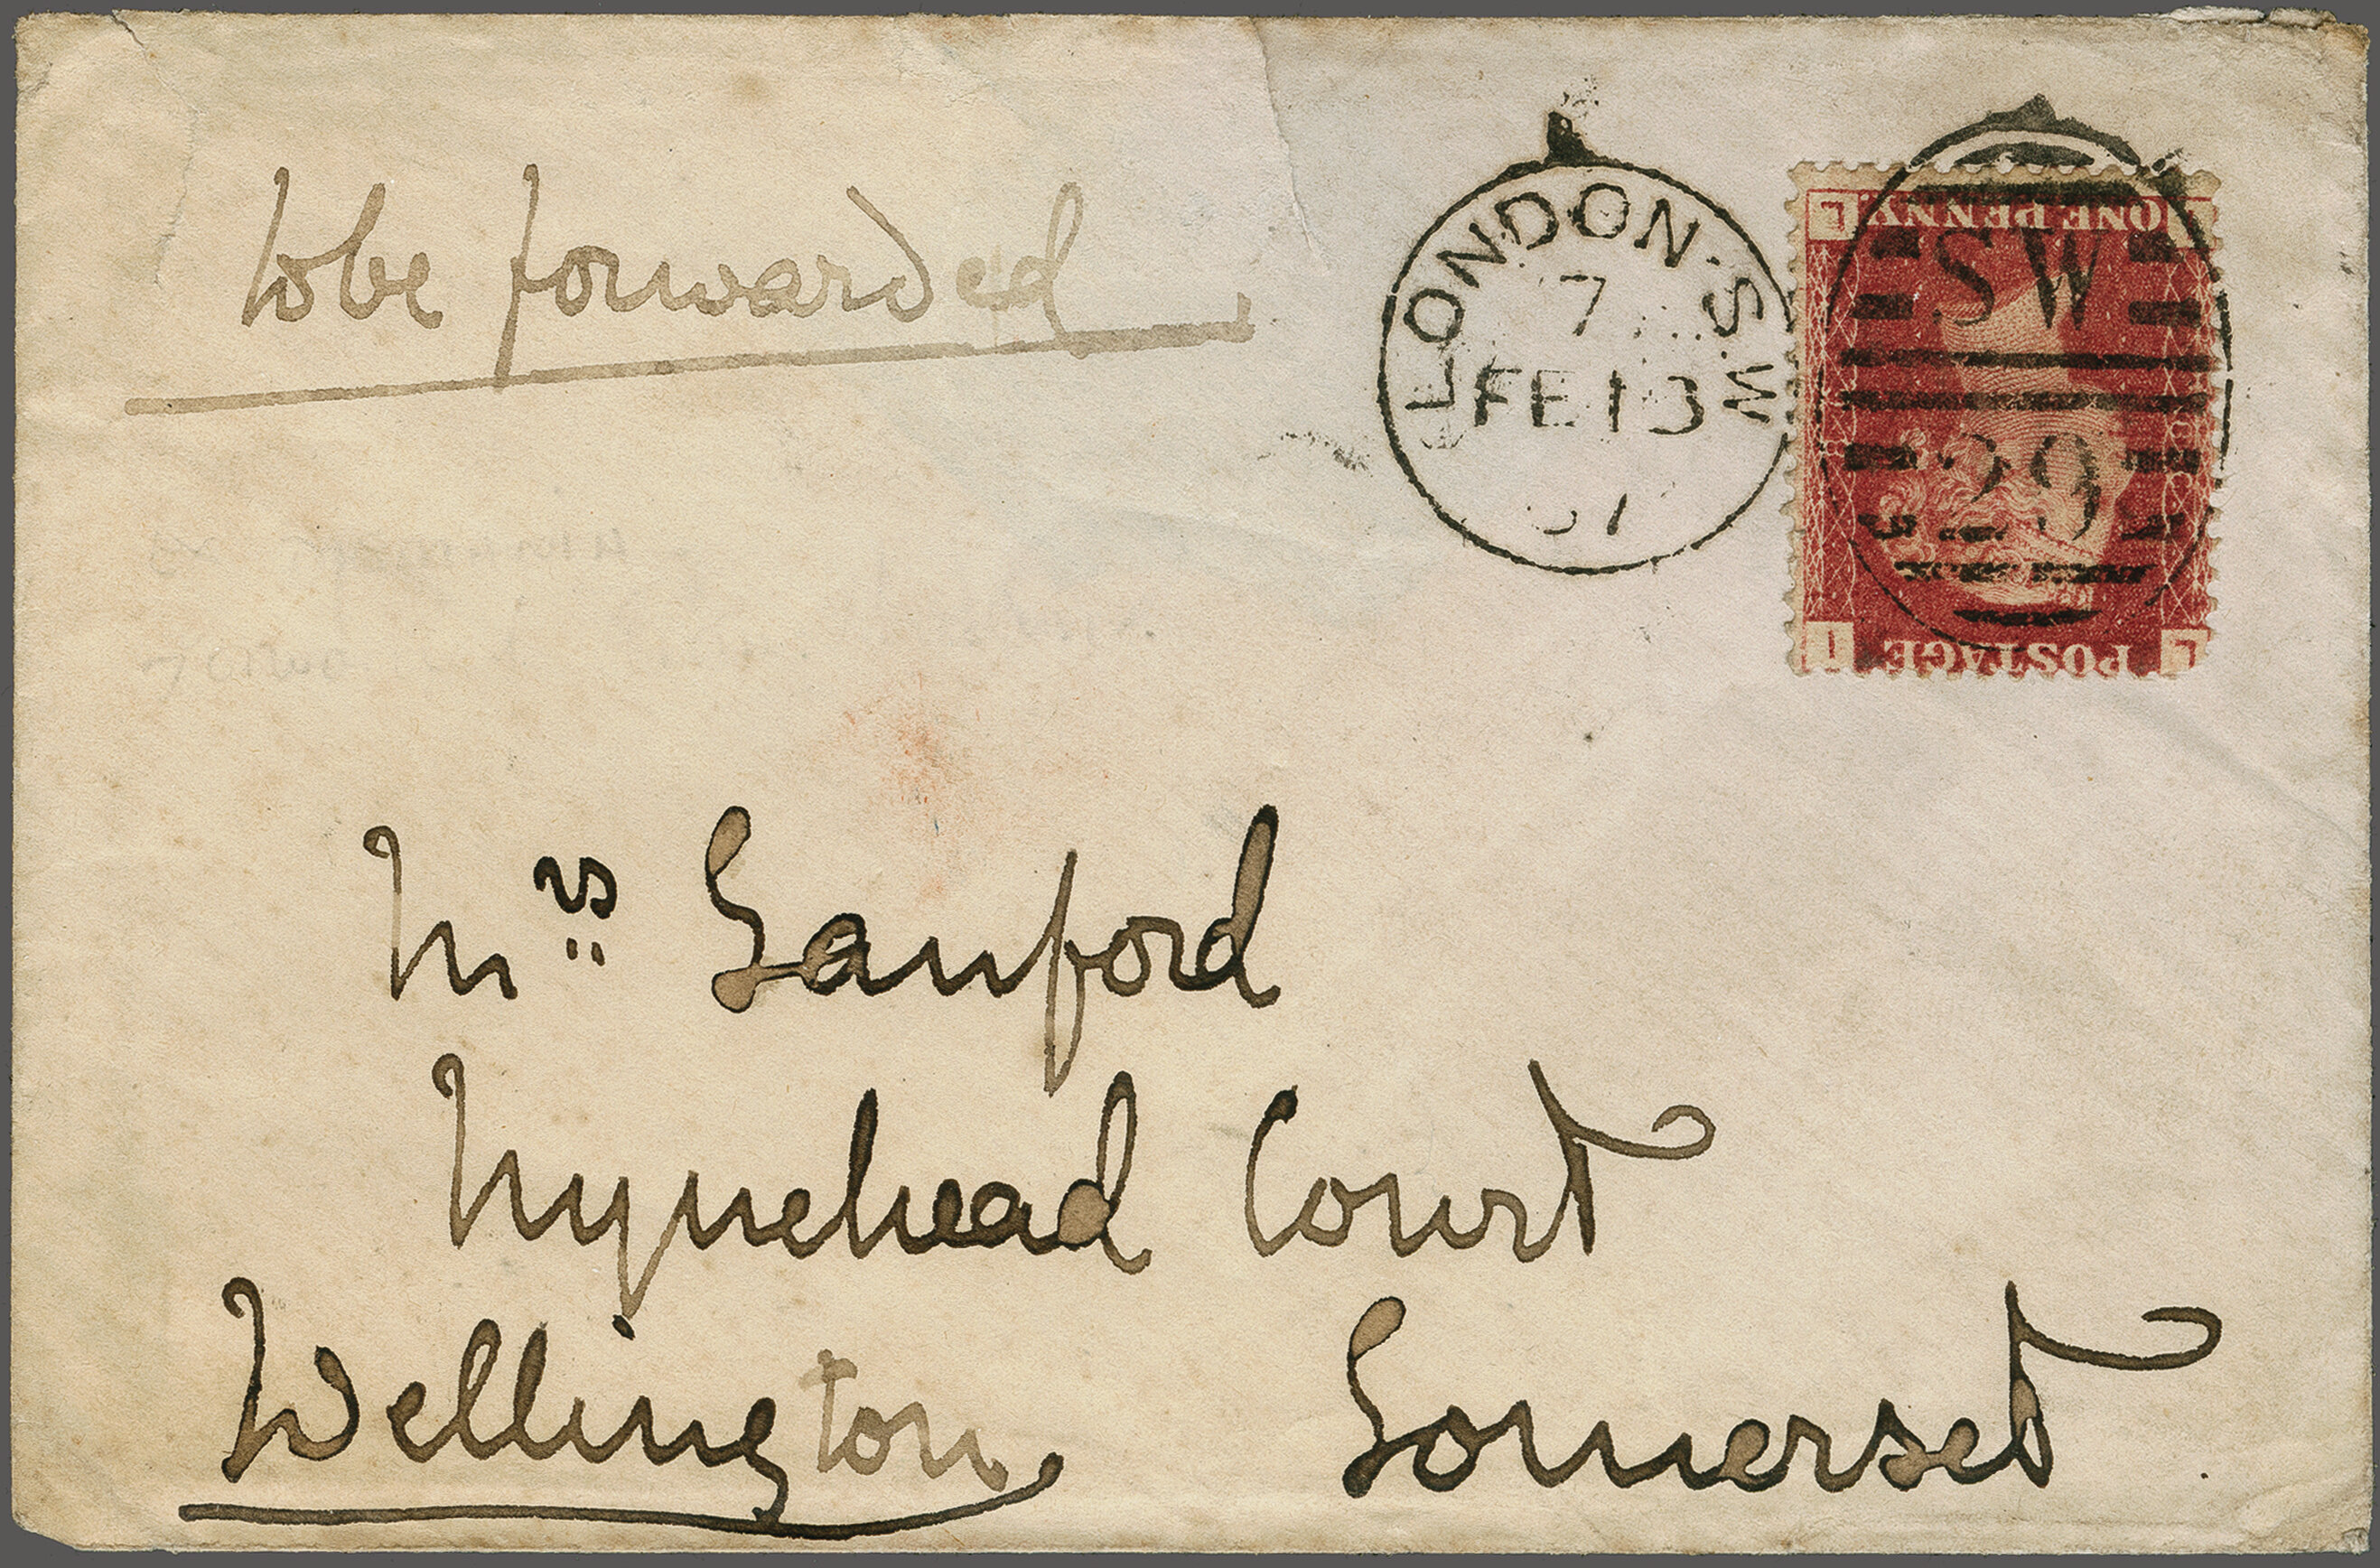 to be forwarded
LONDON·S.W
7
FE 13
SW
29
ONE PENNY
POSTAGE
Mrs Sanford
Nynehead Court
Wellington Somerset